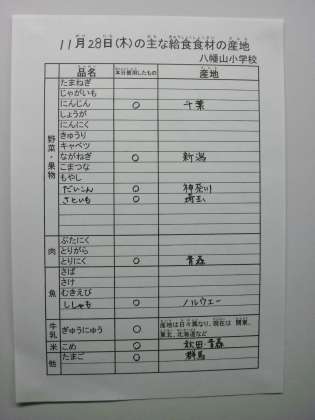 11月28日(木)の主な給食食材の産地
八幡山小学校
品名 本日使用したもの 産地
野菜・果物
たまねぎ
じゃがいも
にんじん ○ 千葉
しょうが
にんにく
きゅうり
キャベツ
ながねぎ ○ 新潟
こまつな
もやし
だいこん ○ 神奈川
さといも ○ 埼玉
肉
ぶたにく
とりがら
とりにく ○ 青森
魚
さば
さけ
むきえび
ししゃも ○ ノルウェー
牛乳 ぎゅうにゅう ○ 産地は日々異なり、現在は 関東、
東北、北海道など
米 こめ ○ 秋田・青森
他 たまご ○ 群馬